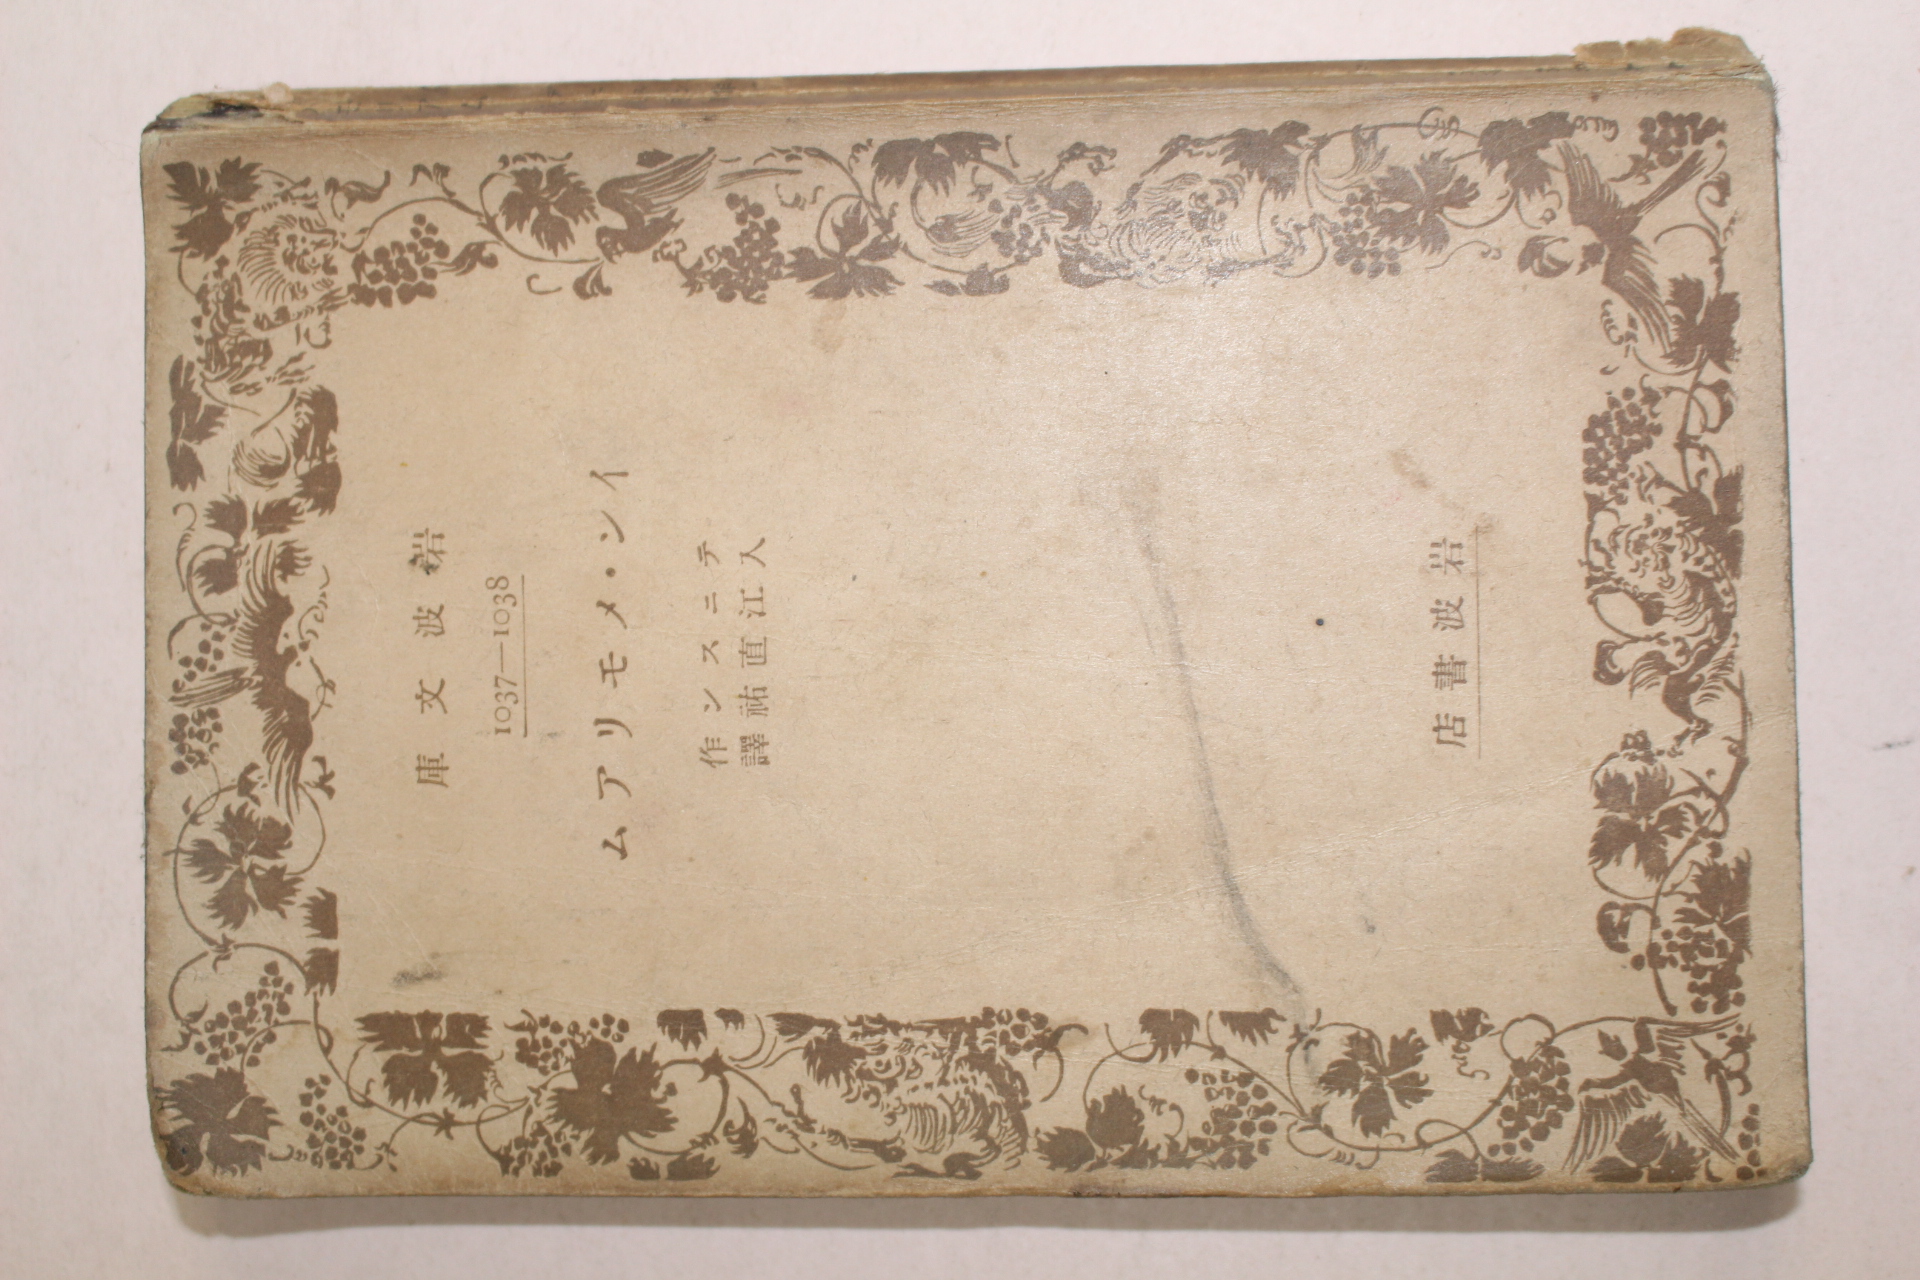 岩波文庫
1037—1038
イン・メモリアム
テニスン作
入江直祐譯
岩波書店